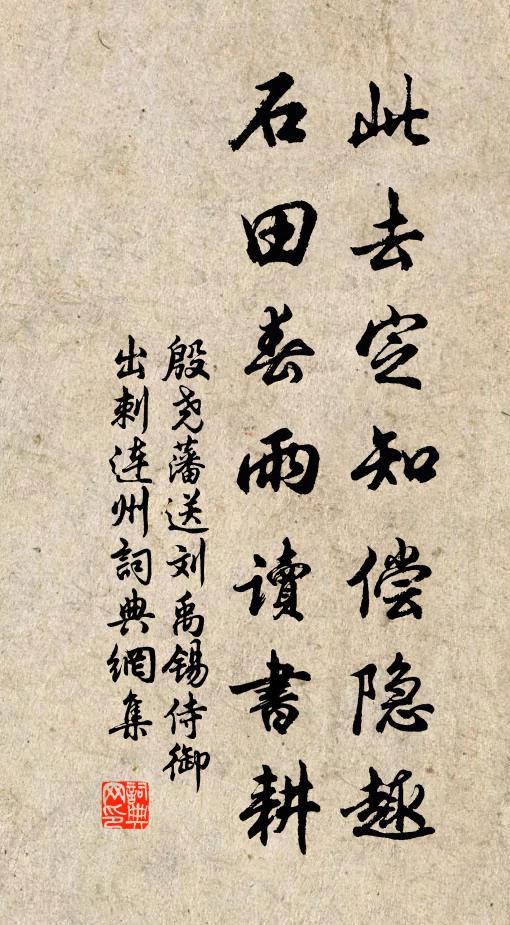 此去定知偿隐趣
石田春雨讀書耕
殷尧藩送刘禹锡侍御
出刺连州詞典網集
詞典网印